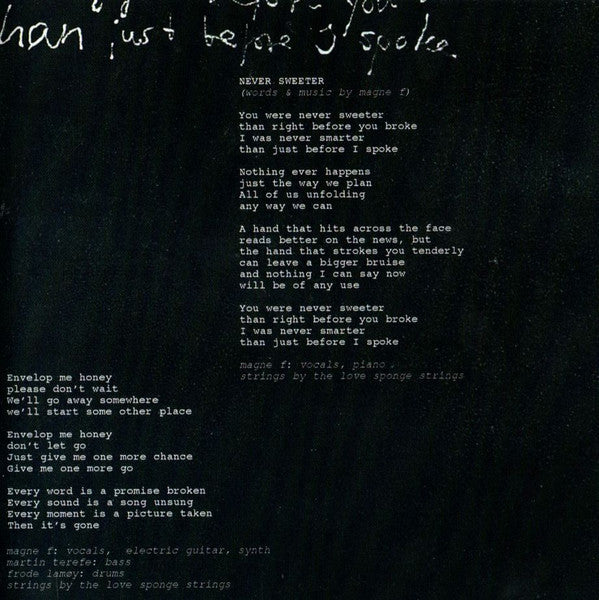 before you
than just before I spoke
NEVER SWEETER
(words & music by magne f)
You were never sweeter
than right before you broke
I was never smarter
than just before I spoke
Nothing ever happens
just the way we plan
All of us unfolding
any way we can
A hand that hits across the face
reads better on the news, but
the hand that strokes you tenderly
can leave a bigger bruise
and nothing I can say now
will be of any use
You were never sweeter
than right before you broke
I was never smarter
than just before I spoke
magne f: vocals, piano.
strings by the love sponge strings
Envelop me honey
please don't wait
We'll go away somewhere
we'll start some other place
Envelop me honey
don't let go
Just give me one more chance
Give me one more go
Every word is a promise broken
Every sound is a song unsung
Every moment is a picture taken
Then it's gone
magne f: vocals, electric guitar, synth
martin terefe: bass
frode lamøy: drums
strings by the love sponge strings